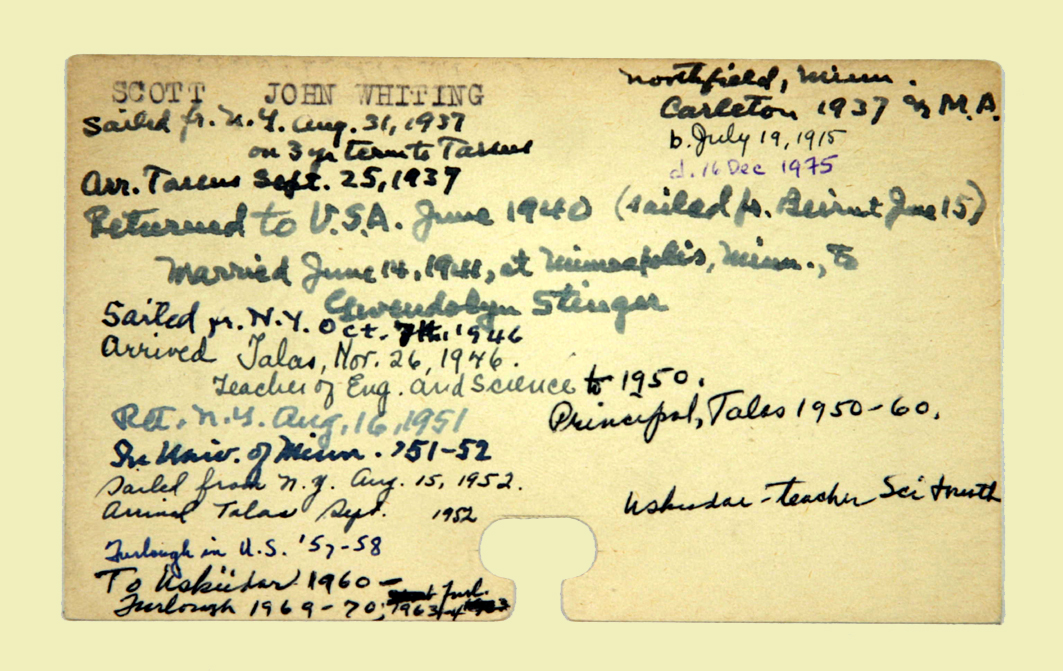 SCOTT JOHN WHITING
Northfield, Minn.
Carleton 1937 M.A.
b. July 19, 1915
d. 16 Dec 1975
Sailed fr. N.Y. Aug. 31, 1937
on 3 yr term to Tarsus
Arr. Tarsus Sept. 25, 1937
Returned to U.S.A. June 1940 (sailed fr. Beirut June 15)
Married June 14, 1941, at Minneapolis, Minn., to
Gwendolyn
Sailed fr. N.Y. Oct. 7th, 1946
Arrived Talas, Nov. 26, 1946.
Teacher of Eng. and Science to 1950.
Principal, Talas 1950-60.
Ret. N.Y. Aug. 16, 1951
In Univ. of Minn. '51-52
Sailed from N.Y. Aug. 15, 1952.
Arrived Talas Sept. 1952
Uskudar - teacher Sci + math
Furlough in U.S. '57-58
To Üsküdar 1960 -
Furlough 1969-70; furl.
1963-4